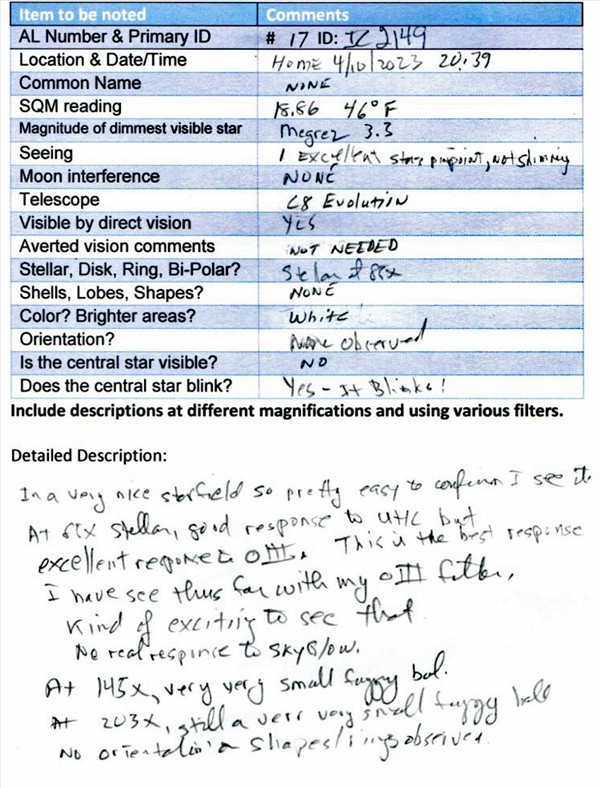 Item to be noted Comments
AL Number & Primary ID # 17 ID: IC 2149
Location & Date/Time HOME 4/10/2023 20:39
Common Name NONE
SQM reading 18.86 46°F
Magnitude of dimmest visible star Megrez 3.3
Seeing 1 Excellent stars pinpoint, not shimring
Moon interference NONE
Telescope C8 Evolution
Visible by direct vision YES
Averted vision comments NOT NEEDED
Stellar, Disk, Ring, Bi-Polar? Stelar at 85x
Shells, Lobes, Shapes? NONE
Color? Brighter areas? White
Orientation? None observed
Is the central star visible? NO
Does the central star blink? Yes - It Blinks!
Include descriptions at different magnifications and using various filters.
Detailed Description:
In a very nice starfield so pretty easy to confirm I see it
At 85x stellar, good response to UHC but
excellent response to OIII. This is the best response
I have see thus far with my OIII filter.
Kind of exciting to see that
No real response to SkyGlow.
At 145x, very very small fuzzy ball.
At 203x, still a very very small fuzzy ball
No orientation or shapes/rings observed.